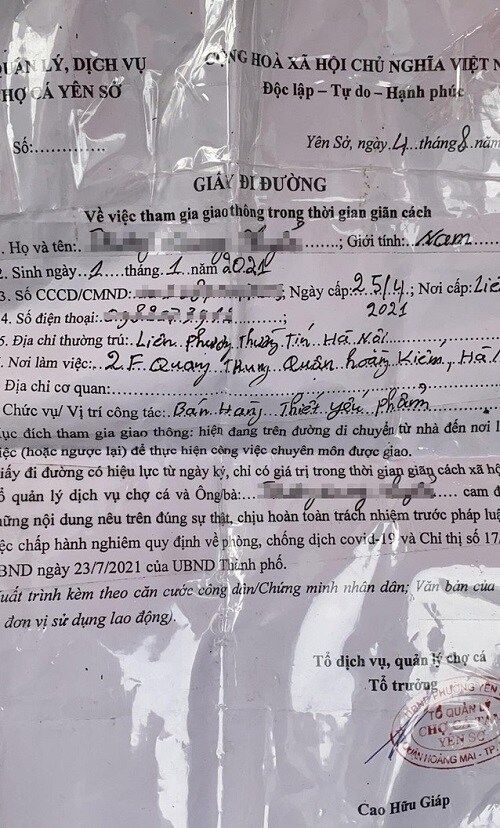 QUẢN LÝ, DỊCH VỤ
CỘNG HOÀ XÃ HỘI CHỦ NGHĨA VIỆT N
CHỢ CÁ YÊN SỞ
Độc lập – Tự do – Hạnh phúc
Số:...............
Yên Sở, ngày 4 tháng 8 năm
GIẤY ĐI ĐƯỜNG
Về việc tham gia giao thông trong thời gian giãn cách
1. Họ và tên: ; Giới tính: Nam
2. Sinh ngày 1 tháng 1 năm 2021
3. Số CCCD/CMND: ; Ngày cấp: 25/4/2021 ; Nơi cấp:
4. Số điện thoại:
5. Địa chỉ thường trú: Liên Phương Thường Tín Hà Nội
Nơi làm việc: 2.F. Quang Trung Quận Hoàng Kiếm, Hà
Địa chỉ cơ quan:
Chức vụ/ Vị trí công tác: Bán Hàng Thiết yếu phẩm
ục đích tham gia giao thông: hiện đang trên đường di chuyển từ nhà đến nơi l
iệc (hoặc ngược lại) để thực hiện công việc chuyên môn được giao.
iấy đi đường có hiệu lực từ ngày ký, chỉ có giá trị trong thời gian giãn cách xã hộ
ổ quản lý dịch vụ chợ cá và Ông/bà: cam đ
hững nội dung nêu trên đúng sự thật, chịu hoàn toàn trách nhiệm trước pháp luật
ệc chấp hành nghiêm quy định về phòng, chống dịch covid-19 và Chỉ thị số 17/
BND ngày 23/7/2021 của UBND Thành phố.
uất trình kèm theo căn cước công dân/Chứng minh nhân dân; Văn bản của
đơn vị sử dụng lao động).
Tổ dịch vụ, quản lý chợ cá
Tổ trưởng
PHƯỜNG YÊN
TỔ QUẢN LÝ
CHỢ CÁ
YÊN SỞ
QUẬN HOÀNG MAI - TP
Cao Hữu Giáp